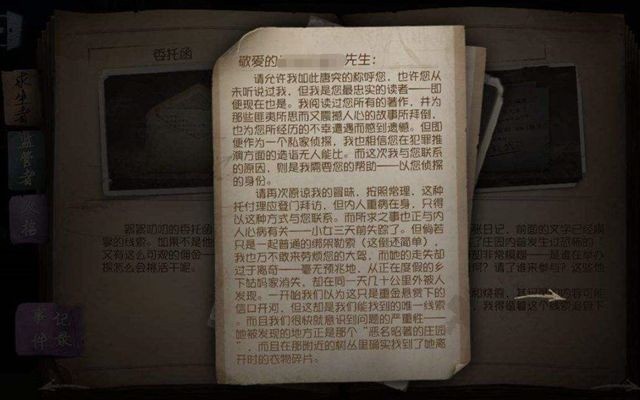 委托函
求生者
监管者
记录
敬爱的 先生：
请允许我如此唐突的称呼您，也许您从
未听说过我，但我是您最忠实的读者——即
便现在也是。我阅读过您所有的著作，并为
那些匪夷所思而又震撼人心的故事所拜倒，
也为您所经历的不幸遭遇而感到遗憾。但即
便作为一个私家侦探，我也相信您在犯罪推
演方面的造诣无人能比。而这次我与您联系
的原因，则是我需要您的帮助——以您侦探
的身份。
请再次原谅我的冒昧，按照常理，这种
托付理应登门拜访，但内人重病在身，只得
以这种方式与您联系。而所求之事也正与内
人心病有关——小女三天前失踪了。但倘若
只是一起普通的绑架勒索（这倒还简单），
我也万不敢来劳烦您的大驾，而她的走失却
过于离奇——毫无预兆地，从正在度假的乡
下姑妈家消失，却在同一天几十公里外被人
发现。一开始我们以为这只是重金悬赏下的
信口开河，但这却是我们能找到的唯一线索
。而且我们很快就意识到问题的严重性——
她被发现的地方正是那个“恶名昭著的庄园
”，而且在那附近的树丛里确实找到了她离
开时的衣物碎片。
张日记，前面的文字已经模
了庄园内曾发生过恐怖的
却非常模糊——是谁在举办
何？请了谁来参与？这些他
絮絮叨叨的委托函
寥的线索。如果不是他
又有这么可观的佣金
探怎么会接活干呢。